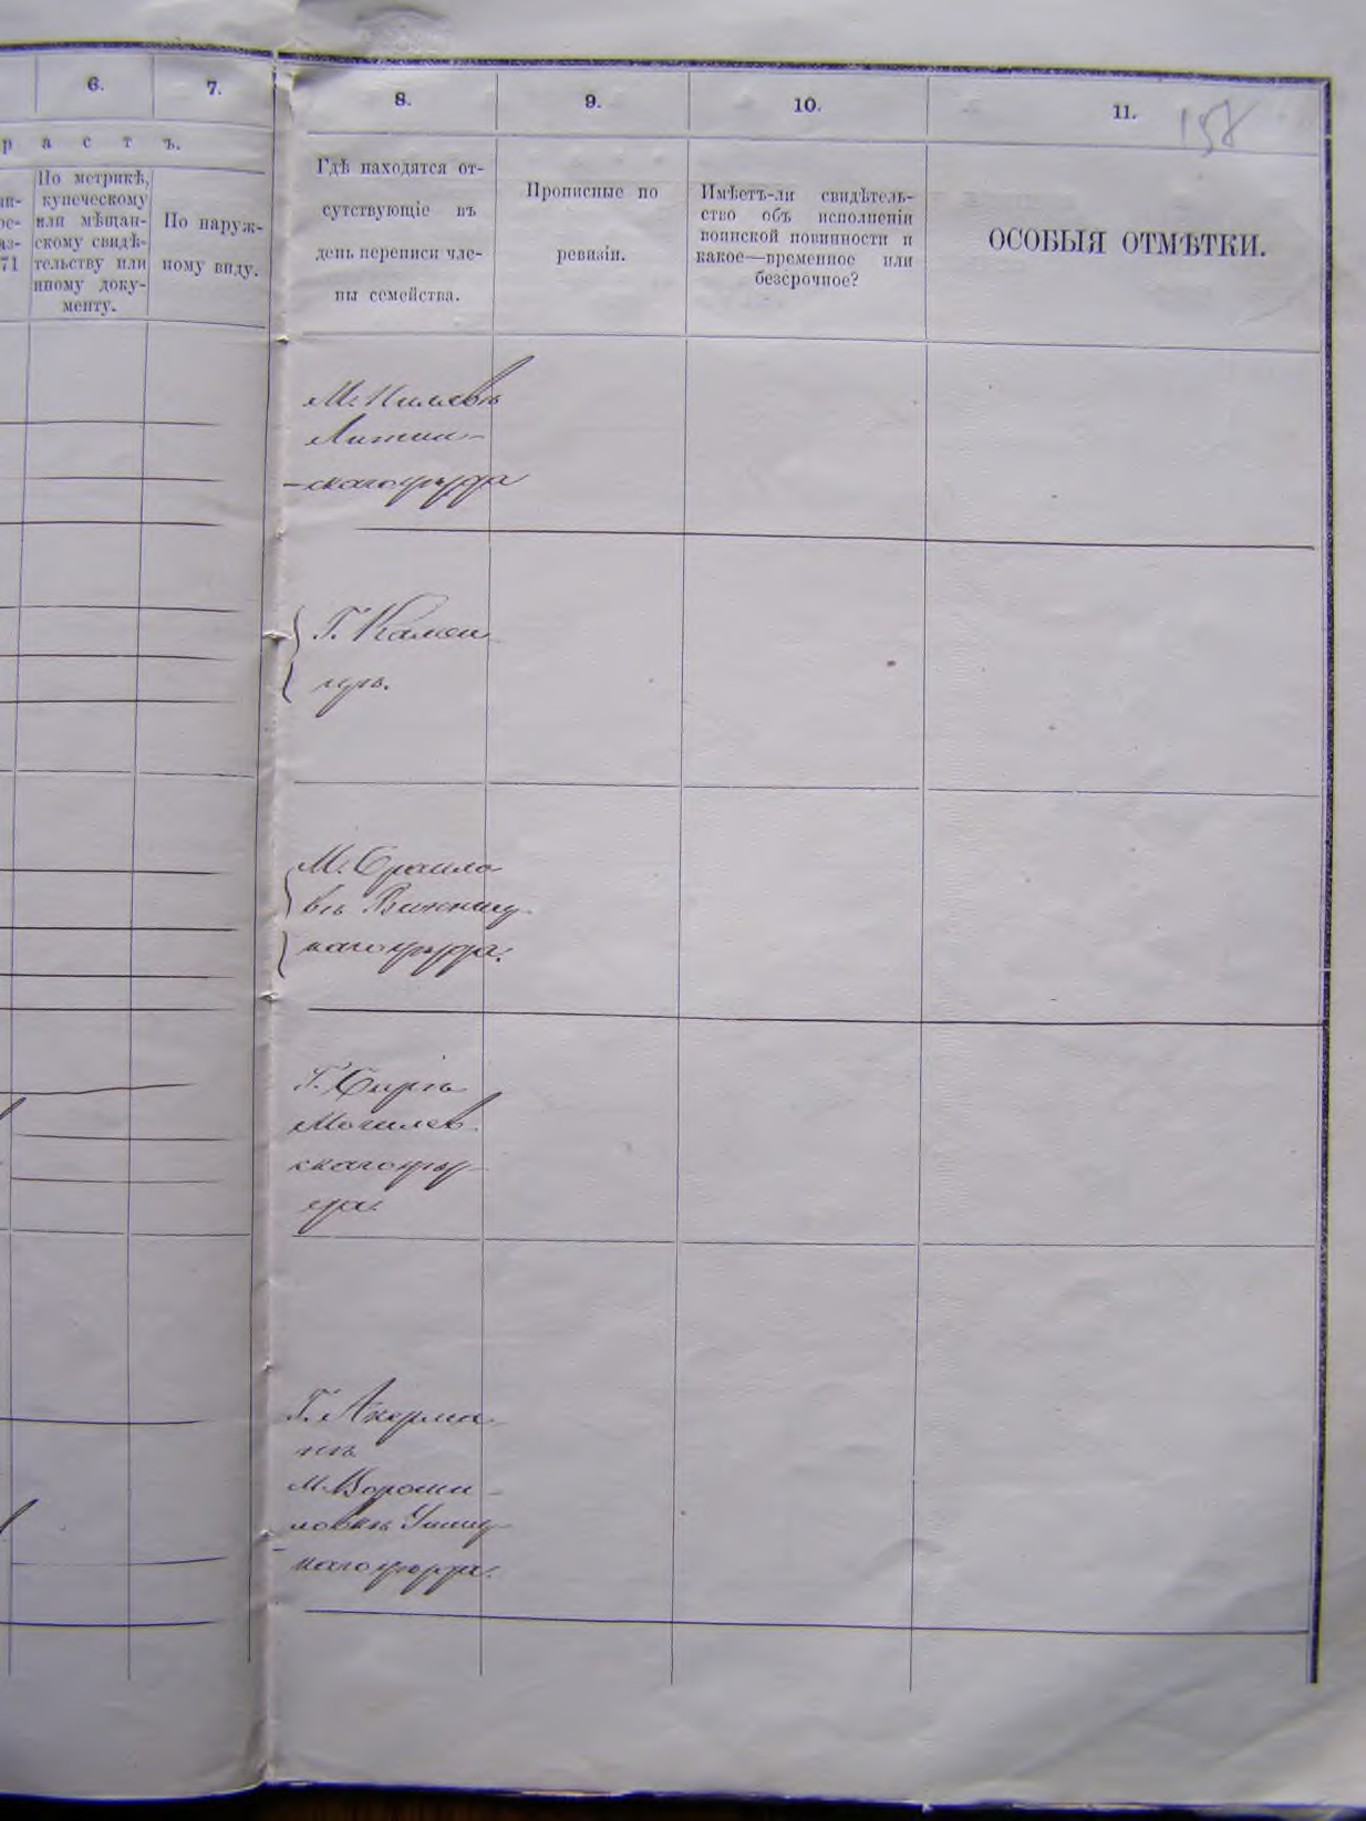 6.
7.
8.
9.
10.
11.
158
р а с т ъ.
По метрикѣ,
купеческому
или мѣщан-
скому свидѣ-
тельству или
иному доку-
менту.
71
По наруж-
ному виду.
Гдѣ находятся от-
сутствующіе въ
день переписи чле-
ны семейства.
Прописные по
ревизіи.
Имѣетъ-ли свидѣтель-
ство объ исполненіи
воинской повинности и
какое—временное или
безсрочное?
ОСОБЫЯ ОТМѢТКИ.
М. Пилявѣ
Литин-
-скаго уѣзда
Г. Камен
М. Браило
вѣ Винниц-
каго уѣзда.
Могилев
скаго уѣз-
да.
Г. Акерма-
нѣ
М. Вороши-
ловкѣ Ушиц-
каго уѣзда.